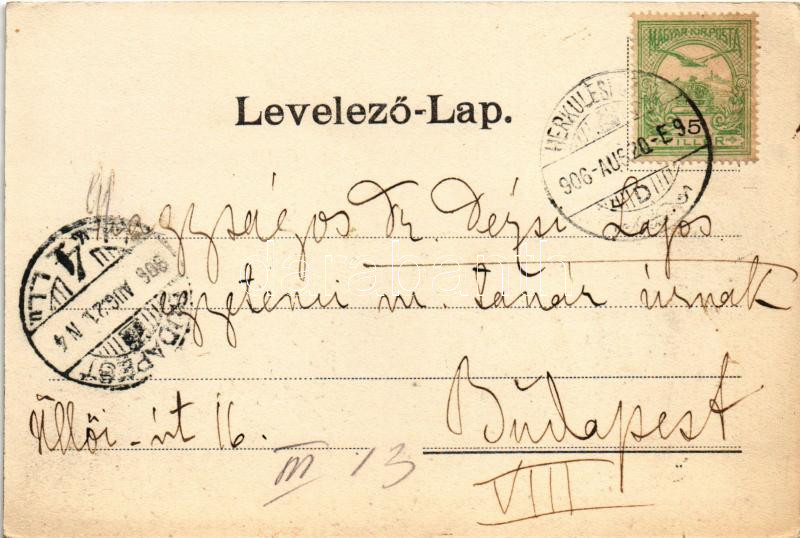 MAGYAR KIR. POSTA
5
FILLÉR
HERKULES
906-AUG.20.-E 9
D
Levelező-Lap.
Nagyságos Dr. Dézsi Lajos
egyetemi m. tanár úrnak
Budapest
VIII
Üllői-út 16.
III 13
BUDAPEST
906 AUG.21. N4
darabanth